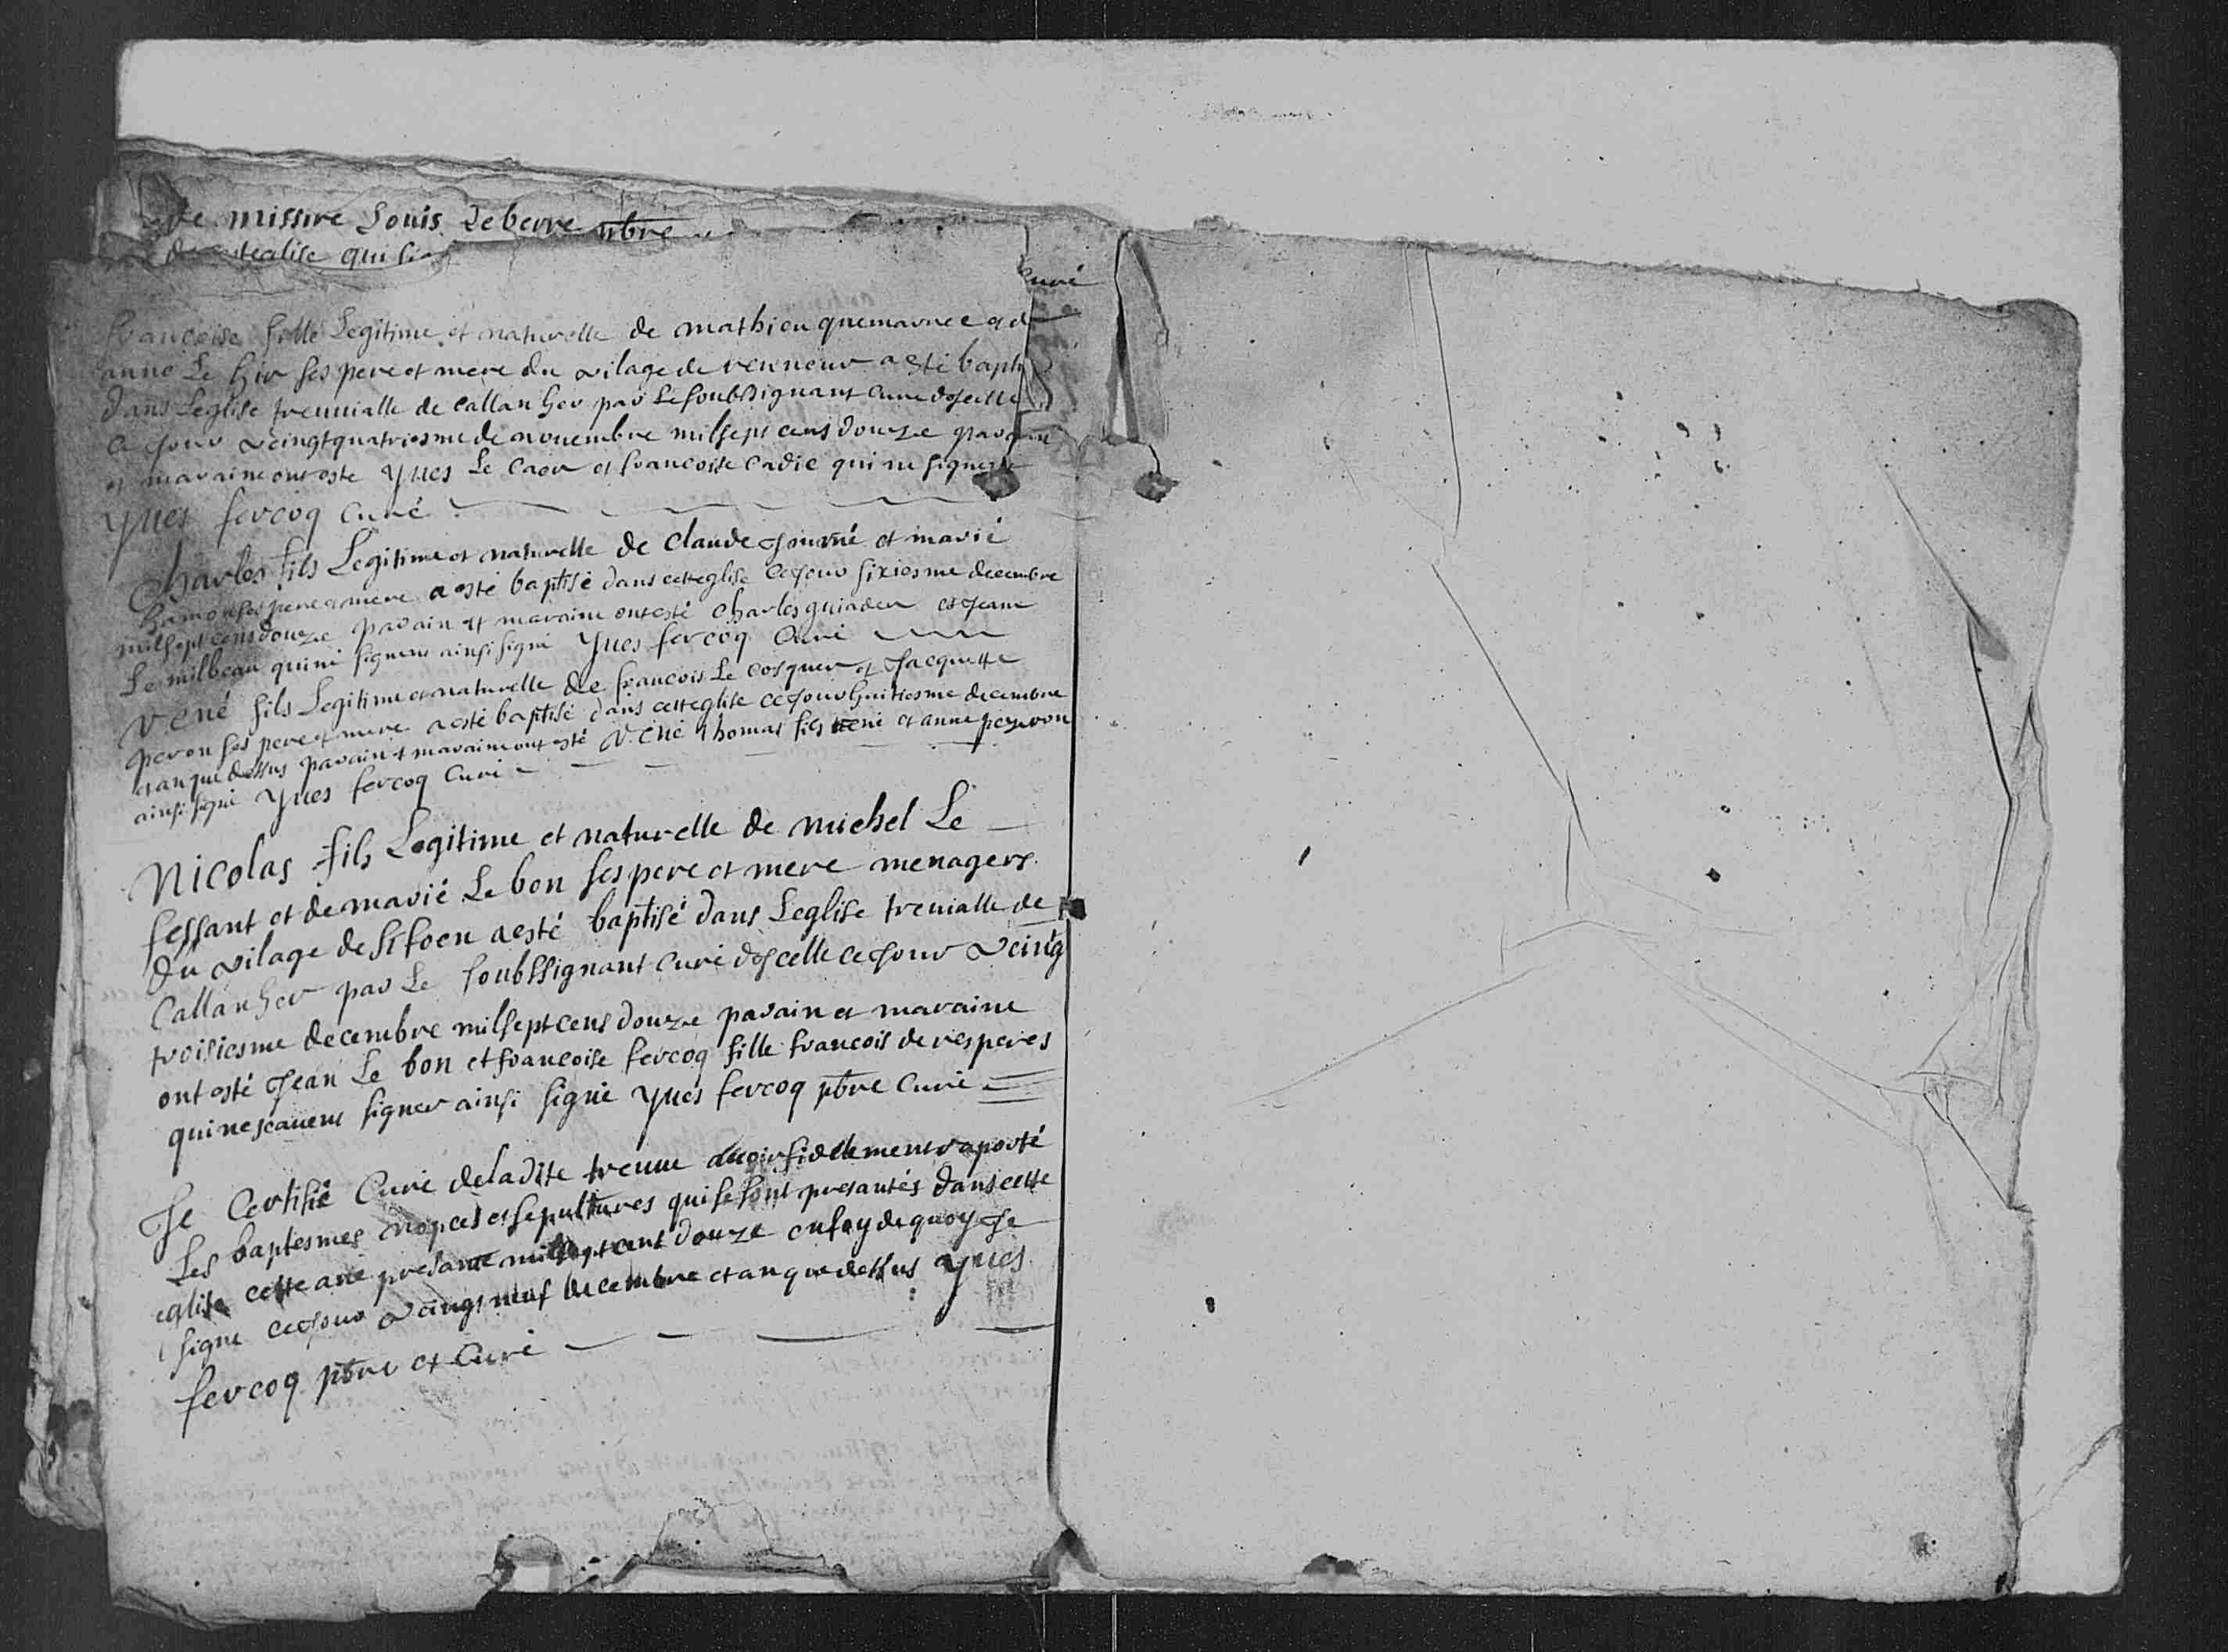 missire Louis Le berre pbre
esteglise qui sig
curé
francoise fille Legitime et naturelle de mathieu quemarree et de
anne Le hir ses pere et mere du vilage de vennour a esté bapti
dans Leglise treuuialle de callanher par Le soubssignant cure dyscelle
ce jour veingtquatriesme de nouembre milsept cens douze parain
et maraine ont esté yues Le caer et francoise cadic qui ne signent
yues fercoq curé
Charles fils Legitime et naturelle de claude journé et marié
hamon ses pere et mere a esté baptisé dans cetteglise cejour sixiesme decembre
milsept cens douze parain et maraine ont esté charles guiader et jeane
Le milbeau qui ne signent ainsi signé yues fercoq curé
rené fils Legitime et naturelle de francois Le cosquer et jacquette
peron ses pere et mere a esté baptisé dans cetteglise cejour huitiesme decembre
et an que dessus parain et maraine ont esté rené thomas fils rené et anne peyron
ainsi signé yues fercoq curé
Nicolas fils Legitime et naturelle de michel Le
fessant et de marié Le bon ses pere et mere menagers
du vilage de sifoen a esté baptisé dans Leglise treuialle de
Callanher par Le soubssignant curé dyscelle ce jour veing
troisiesme decembre milsept cens douze parain et maraine
ont esté jean Le bon et francoise fercoq fille francois de resperes
qui ne scauent signer ainsi signé yues fercoq pbre curé
Je Certifié Curé de ladite treuue auoir fidellement raporté
Les baptesmes nopces et sepultures qui se sont presantés dans cette
eglise cette ané presante milsept cent douze en foy de quoy Je
signe cejour veingt neuf decembre et an que dessus yues
fercoq pbre et curé